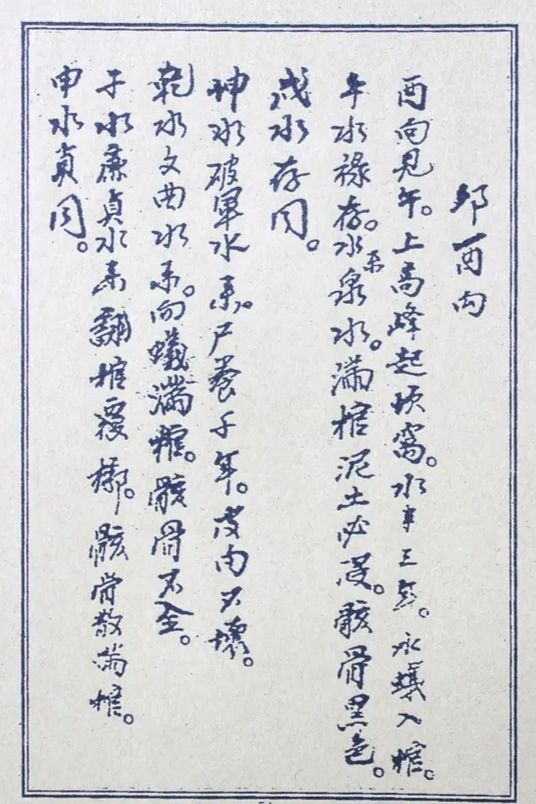 酉向
酉向見午。上高峰起頂窩。水三年。水蟻入棺。
午水祿存。水來泉水。滿棺泥土必没。骸骨黑色。
戌水存同。
坤水破軍水來。尸養千年。皮肉不壞。
乾水文曲水來。向蟻滿棺。骸骨不全。
子水廉貞水來翻棺覆槨。骸骨散满棺。
申水貞同。